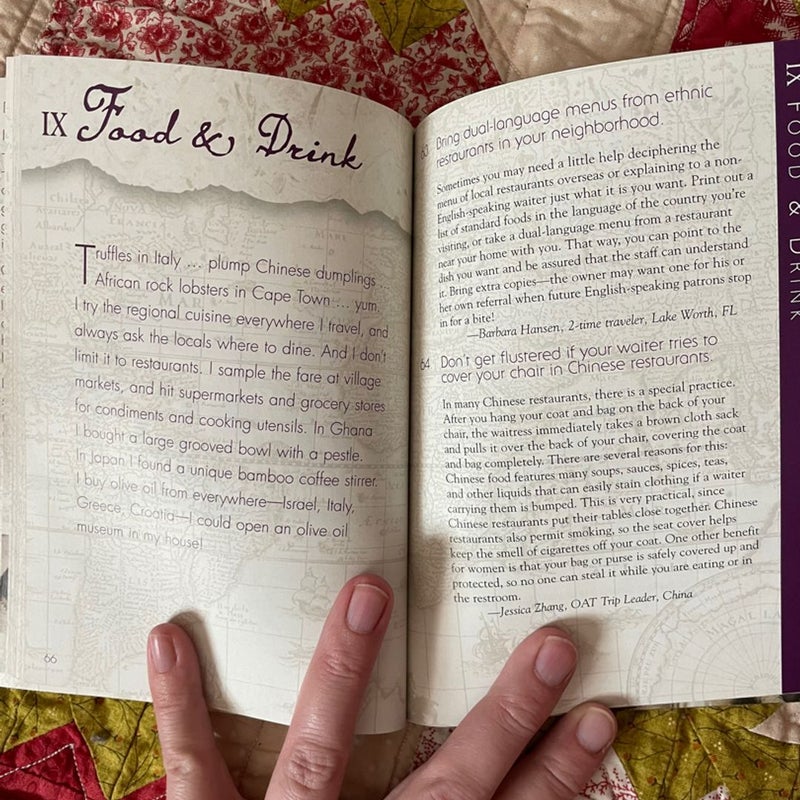 IX Food & Drink
Truffles in Italy ... plump Chinese dumplings ...
African rock lobsters in Cape Town ... yum.
I try the regional cuisine everywhere I travel, and
always ask the locals where to dine. And I don't
limit it to restaurants. I sample the fare at village
markets, and hit supermarkets and grocery stores
for condiments and cooking utensils. In Ghana
I bought a large grooved bowl with a pestle.
In Japan I found a unique bamboo coffee stirrer.
I buy olive oil from everywhere—Israel, Italy,
Greece, Croatia—I could open an olive oil
museum in my house!
66
63 Bring dual-language menus from ethnic
restaurants in your neighborhood.
Sometimes you may need a little help deciphering the
menu of local restaurants overseas or explaining to a non-
English-speaking waiter just what it is you want. Print out a
list of standard foods in the language of the country you're
visiting, or take a dual-language menu from a restaurant
near your home with you. That way, you can point to the
dish you want and be assured that the staff can understand
it. Bring extra copies—the owner may want one for his or
her own referral when future English-speaking patrons stop
in for a bite!
—Barbara Hansen, 2-time traveler, Lake Worth, FL
64 Don't get flustered if your waiter tries to
cover your chair in Chinese restaurants.
In many Chinese restaurants, there is a special practice.
After you hang your coat and bag on the back of your
chair, the waitress immediately takes a brown cloth sack
and pulls it over the back of your chair, covering the coat
and bag completely. There are several reasons for this:
Chinese food features many soups, sauces, spices, teas,
and other liquids that can easily stain clothing if a waiter
carrying them is bumped. This is very practical, since
Chinese restaurants put their tables close together. Chinese
restaurants also permit smoking, so the seat cover helps
keep the smell of cigarettes off your coat. One other benefit
for women is that your bag or purse is safely covered up and
protected, so no one can steal it while you are eating or in
the restroom.
—Jessica Zhang, OAT Trip Leader, China
IX FOOD & DRINK